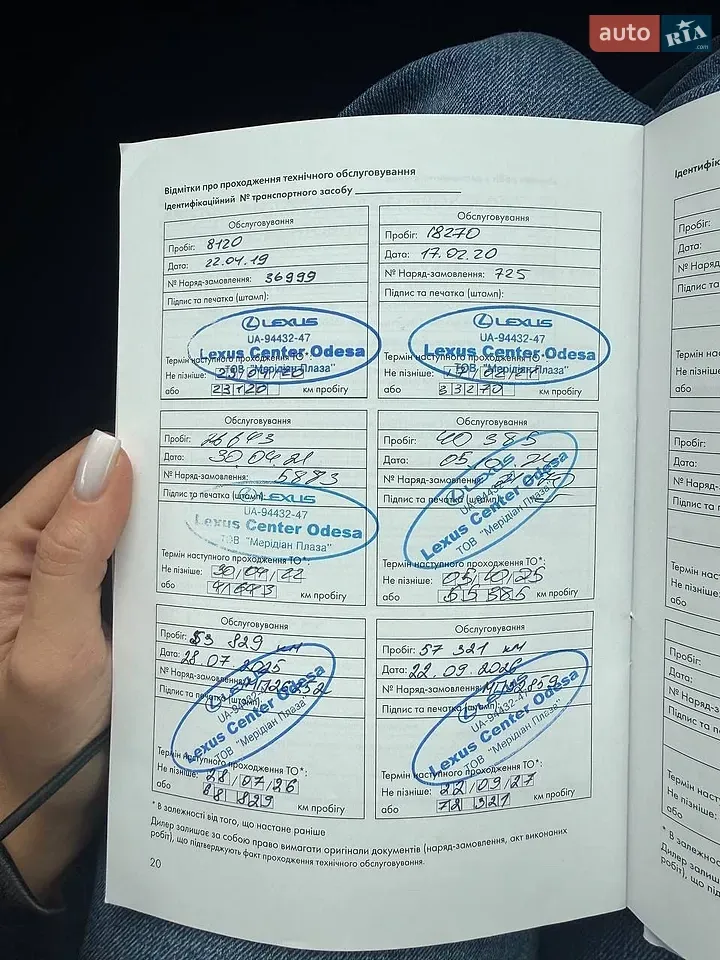 auto RIA .com
Відмітки про проходження технічного обслуговування
Ідентифікаційний № транспортного засобу
Обслуговування
Пробіг: 8120
Дата: 22.04.19
№ Наряд-замовлення: 36999
Підпис та печатка (штамп):
LEXUS
UA-94432-47
Lexus Center Odesa
ТОВ "Мерідіан Плаза"
Термін наступного проходження ТО*:
Не пізніше:
або 23120 км пробігу
Обслуговування
Пробіг: 18270
Дата: 17.02.20
№ Наряд-замовлення: 725
Підпис та печатка (штамп):
LEXUS
UA-94432-47
Lexus Center Odesa
ТОВ "Мерідіан Плаза"
Термін наступного проходження ТО*:
Не пізніше: 17/02/21
або 33270 км пробігу
Обслуговування
Пробіг: 26643
Дата: 30.04.21
№ Наряд-замовлення: 5883
Підпис та печатка (штамп):
LEXUS
UA-94432-47
Lexus Center Odesa
ТОВ "Мерідіан Плаза"
Термін наступного проходження ТО*:
Не пізніше: 30/04/22
або 41643 км пробігу
Обслуговування
Пробіг: 40385
Дата: 05.
№ Наряд-замовлення:
Підпис та печатка
LEXUS
UA-94432-47
Lexus Center Odesa
ТОВ "Мерідіан Плаза"
Термін наступного проходження ТО*:
Не пізніше: 05/10/25
або 55385 км пробігу
Обслуговування
Пробіг: 53 829 км
Дата: 28.07.2025
№ Наряд-замовлення:
Підпис та печатка (штамп):
LEXUS
UA-94432-47
Lexus Center Odesa
ТОВ "Мерідіан Плаза"
Термін наступного проходження ТО*:
Не пізніше: 28/07/26
або 68 829 км пробігу
Обслуговування
Пробіг: 57 321 км
Дата: 22.09.2026
№ Наряд-замовлення:
Підпис та печатка (штамп):
LEXUS
UA-94432-47
Lexus Center Odesa
ТОВ "Мерідіан Плаза"
Термін наступного проходження ТО*:
Не пізніше: 22/09/27
або 72 321 км пробігу
* В залежності від того, що настане раніше
Дилер залишає за собою право вимагати оригінали документів (наряд-замовлення, акт виконаних
робіт), що підтверджують факт проходження технічного обслуговування.
20
Пробіг:
Дата:
№ Наряд-з
Підпис та п
Термін наст
Не пізніше:
або
Пробіг:
Дата:
№ Наряд-з
Підпис та п
Термін наст
Не пізніше:
або
Пробіг:
Дата:
№ Наряд-з
Підпис та п
Термін наст
Не пізніше:
або
* В залежнос
Дилер залиш
робіт), що під